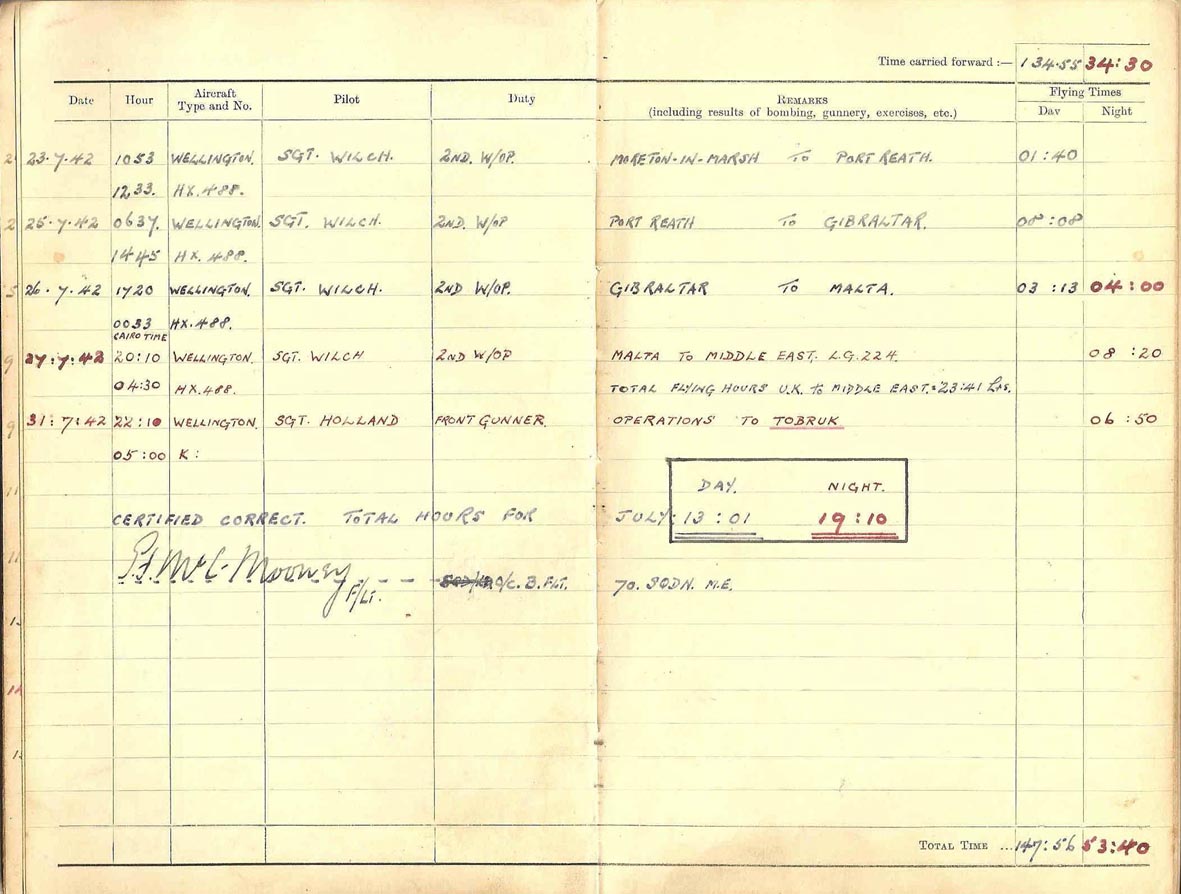 Time carried forward :— 134.55 34:30
Date Hour Aircraft Type and No. Pilot Duty REMARKS (including results of bombing, gunnery, exercises, etc.) Flying Times Day Night
23.7.42 1053 WELLINGTON. SGT. WILCH. 2ND. W/OP. MORETON-IN-MARSH TO PORT REATH. 01:40
1233. HX.488.
25.7.42 0637. WELLINGTON. SGT. WILCH. 2ND. W/OP PORT REATH TO GIBRALTAR. 08:08
1445 HX.488.
26.7.42 1720 WELLINGTON. SGT. WILCH. 2ND W/OP. GIBRALTAR TO MALTA. 03:13 04:00
0033 HX.488.
CAIRO TIME
27:7:42 20:10 WELLINGTON. SGT. WILCH 2ND W/OP MALTA TO MIDDLE EAST. L.G.224. 08:20
04:30 HX.488. TOTAL FLYING HOURS U.K. to MIDDLE EAST.=23:41 Hrs.
31:7:42 22:10 WELLINGTON. SGT. HOLLAND FRONT GUNNER. OPERATIONS TO TOBRUK 06:50
05:00 K:
DAY. NIGHT.
CERTIFIED CORRECT. TOTAL HOURS FOR JULY: 13:01 19:10
McC. Mooney
F/Lt. O/C. B. FLT. 70. SQDN. M.E.
TOTAL TIME ... 147:56 53:40